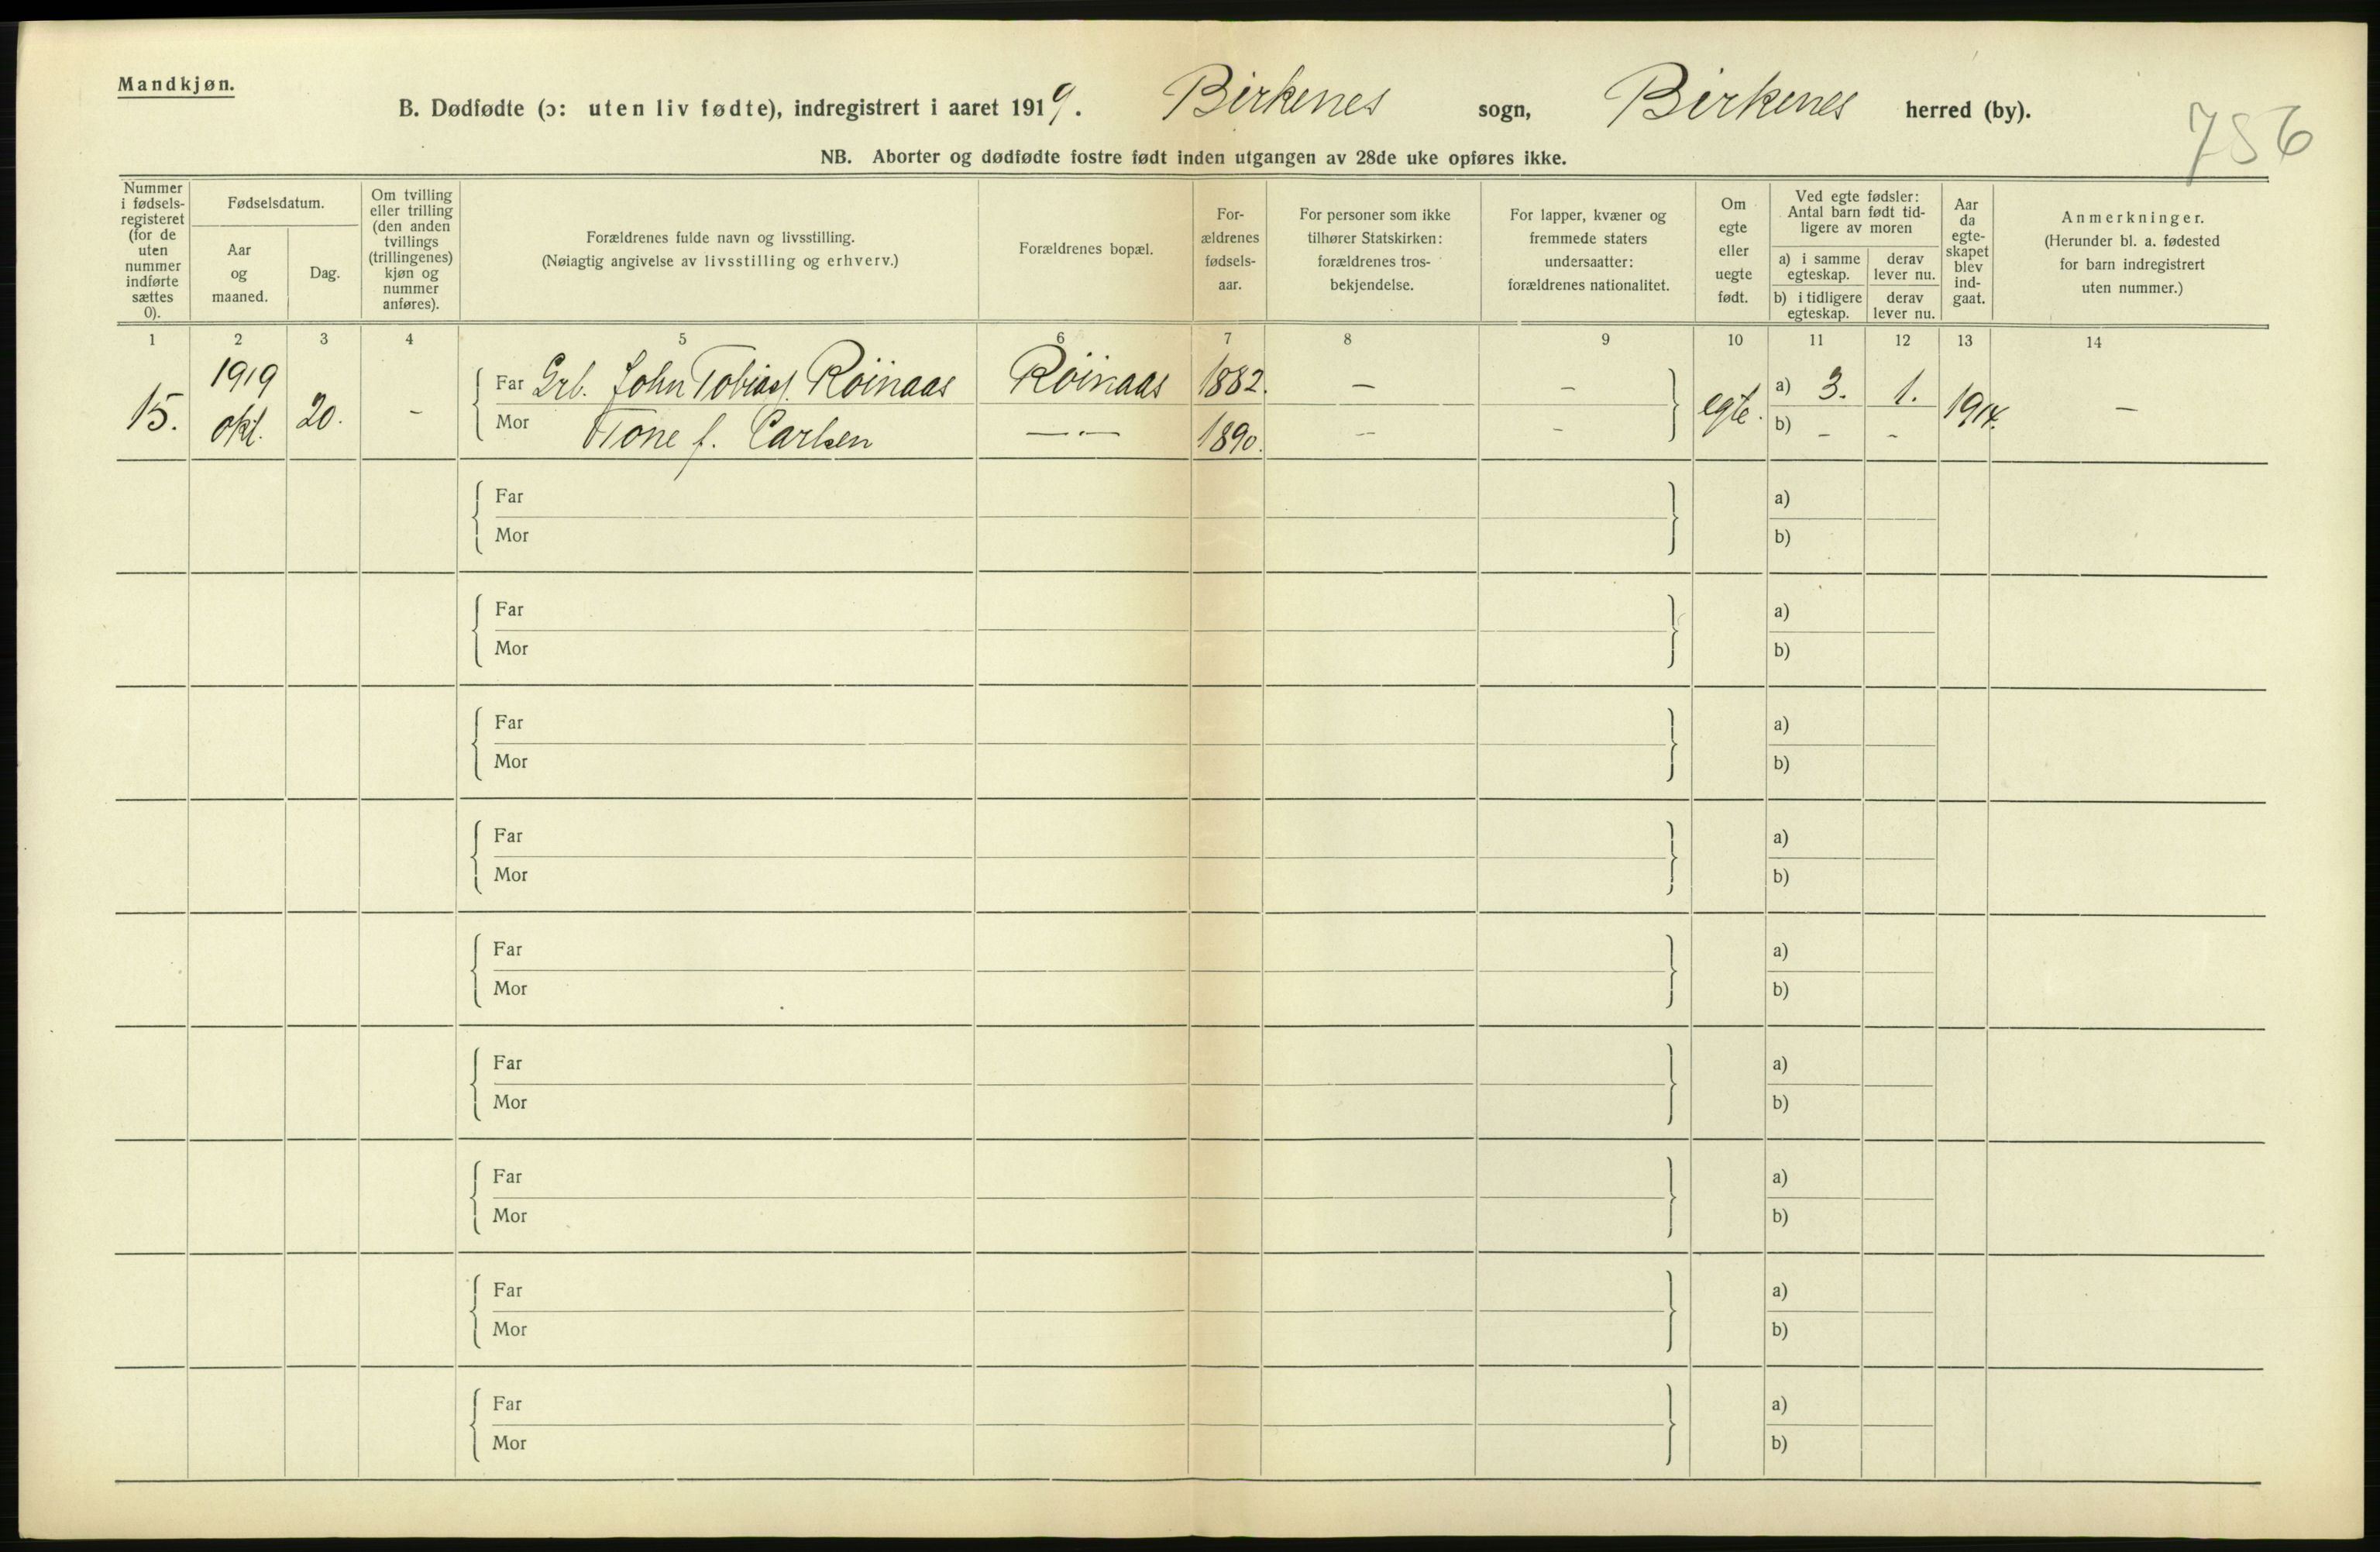 Mandkjøn.
B. Dødfødte (ɔ: uten liv fødte), indregistrert i aaret 1919. Birkenes sogn, Birkenes herred (by).
756
NB. Aborter og dødfødte fostre født inden utgangen av 28de uke opføres ikke.
Nummer
i fødsels-
registeret
(for de
uten
nummer
indførte
sættes
0).
Fødselsdatum.
Aar
og
maaned.
Dag.
Om tvilling
eller trilling
(den anden
tvillings
(trillingenes)
kjøn og
nummer
anføres).
Forældrenes fulde navn og livsstilling.
(Nøiagtig angivelse av livsstilling og erhverv.)
Forældrenes bopæl.
For-
ældrenes
fødsels-
aar.
For personer som ikke
tilhører Statskirken:
forældrenes tros-
bekjendelse.
For lapper, kvæner og
fremmede staters
undersaatter:
forældrenes nationalitet.
Om
egte
eller
uegte
født.
Ved egte fødsler:
Antal barn født tid-
ligere av moren
a) i samme
egteskap.
derav
lever nu.
b) i tidligere
egteskap.
derav
lever nu.
Aar
da
egte-
skapet
blev
ind-
gaat.
Anmerkninger.
(Herunder bl. a. fødested
for barn indregistrert
uten nummer.)
1 2 3 4 5 6 7 8 9 10 11 12 13 14
15. 1919 okt. 20. -
Far Grb. John Tobiass. Röinaas Röinaas 1882. — — egte. a) 3. 1. 1914. —
Mor Tone f. Carlsen —"— 1890. — - b) - -
Far a)
Mor b)
Far a)
Mor b)
Far a)
Mor b)
Far a)
Mor b)
Far a)
Mor b)
Far a)
Mor b)
Far a)
Mor b)
Far a)
Mor b)
Far a)
Mor b)